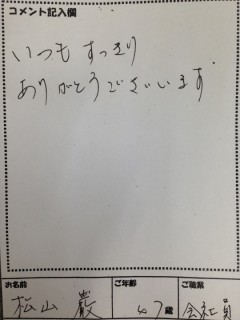 コメント記入欄
いつもすっきり
ありがとうございます
お名前 ご年齢 ご職業
松山 巌 47歳 会社員